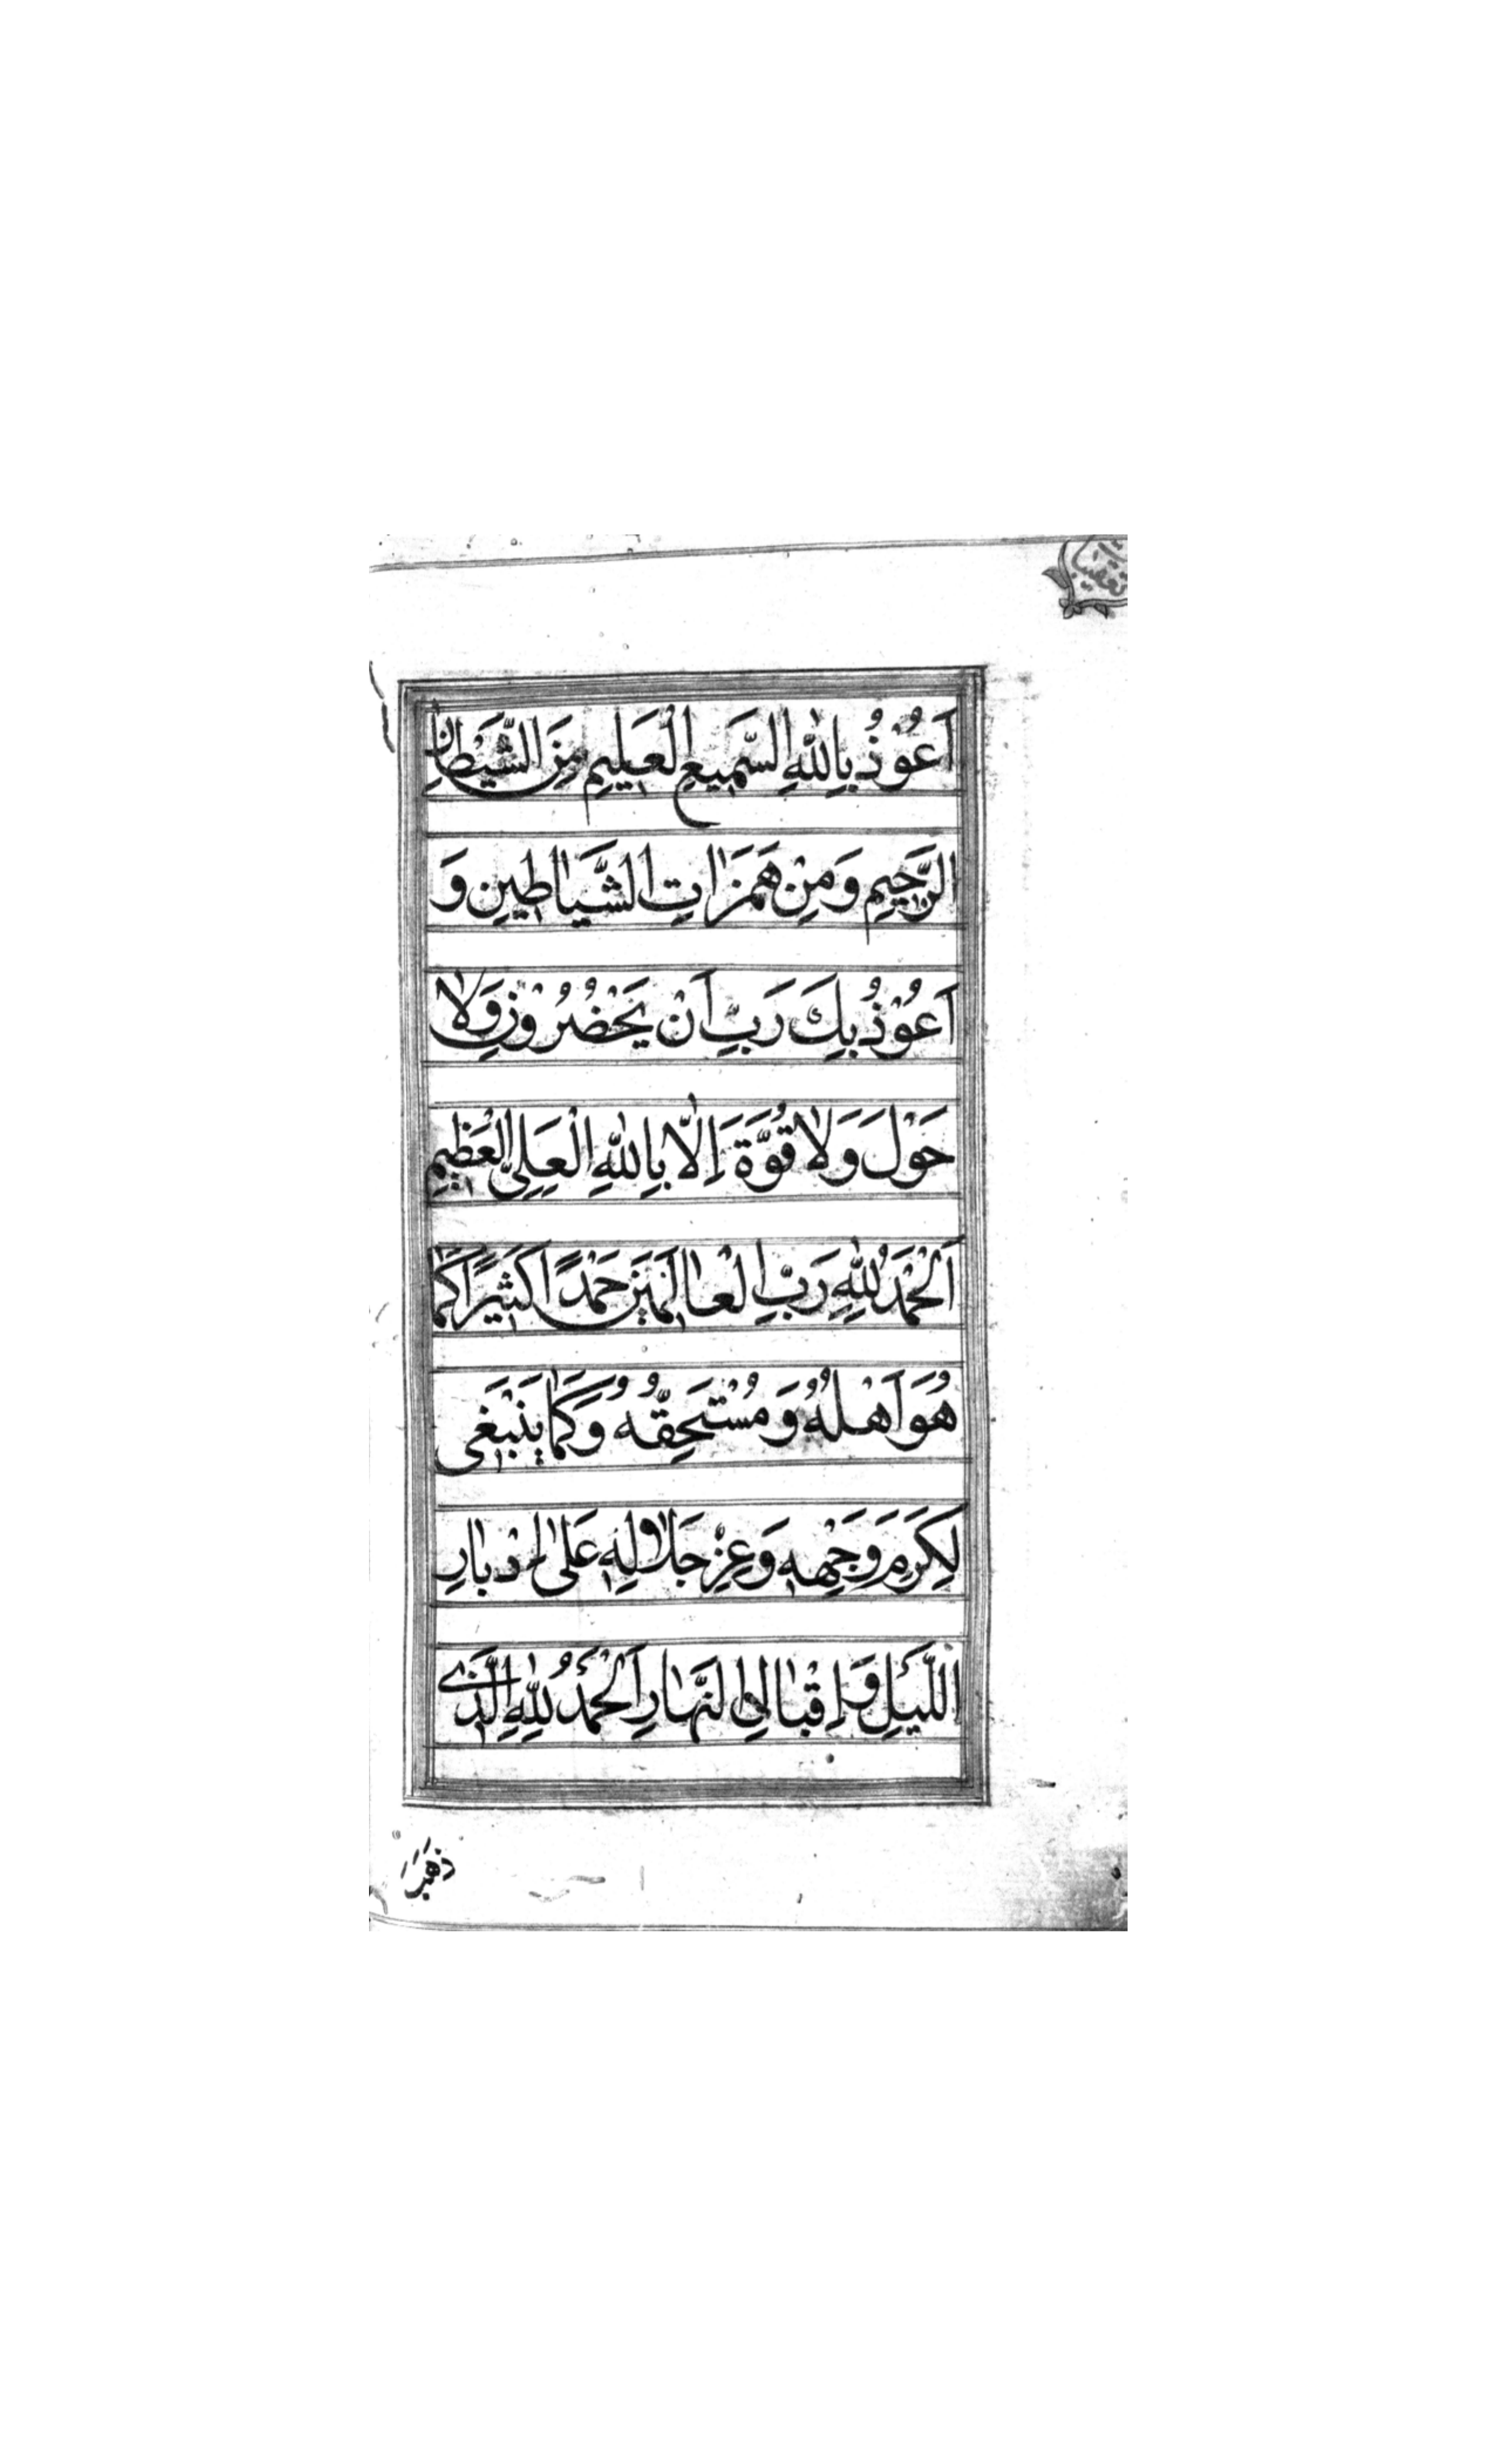 تعقيبات
اَعُوْذُ بِاللّٰهِ السَّمِيعِ الْعَلِيمِ مِنَ الشَّيْطَانِ
الرَّجِيمِ وَمِنْ هَمَزَاتِ الشَّيَاطِينِ وَ
اَعُوْذُ بِكَ رَبِّ اَنْ يَحْضُرُوْنِ وَلَا
حَوْلَ وَلَا قُوَّةَ اِلَّا بِاللّٰهِ الْعَلِيِّ الْعَظِيمِ
اَلْحَمْدُ لِلّٰهِ رَبِّ الْعَالَمِيَنَ حَمْدًا كَثِيرًا كَمَا
هُوَ اَهْلُهُ وَمُسْتَحِقُّهُ وَكَمَا يَنْبَغِى
لِكَرَمِ وَجْهِهِ وَعِزِّ جَلَالِهِ عَلٰى اِدْبَارِ
اللَّيْلِ وَاِقْبَالِ النَّهَارِ اَلْحَمْدُ لِلّٰهِ الَّذِى
ذهب